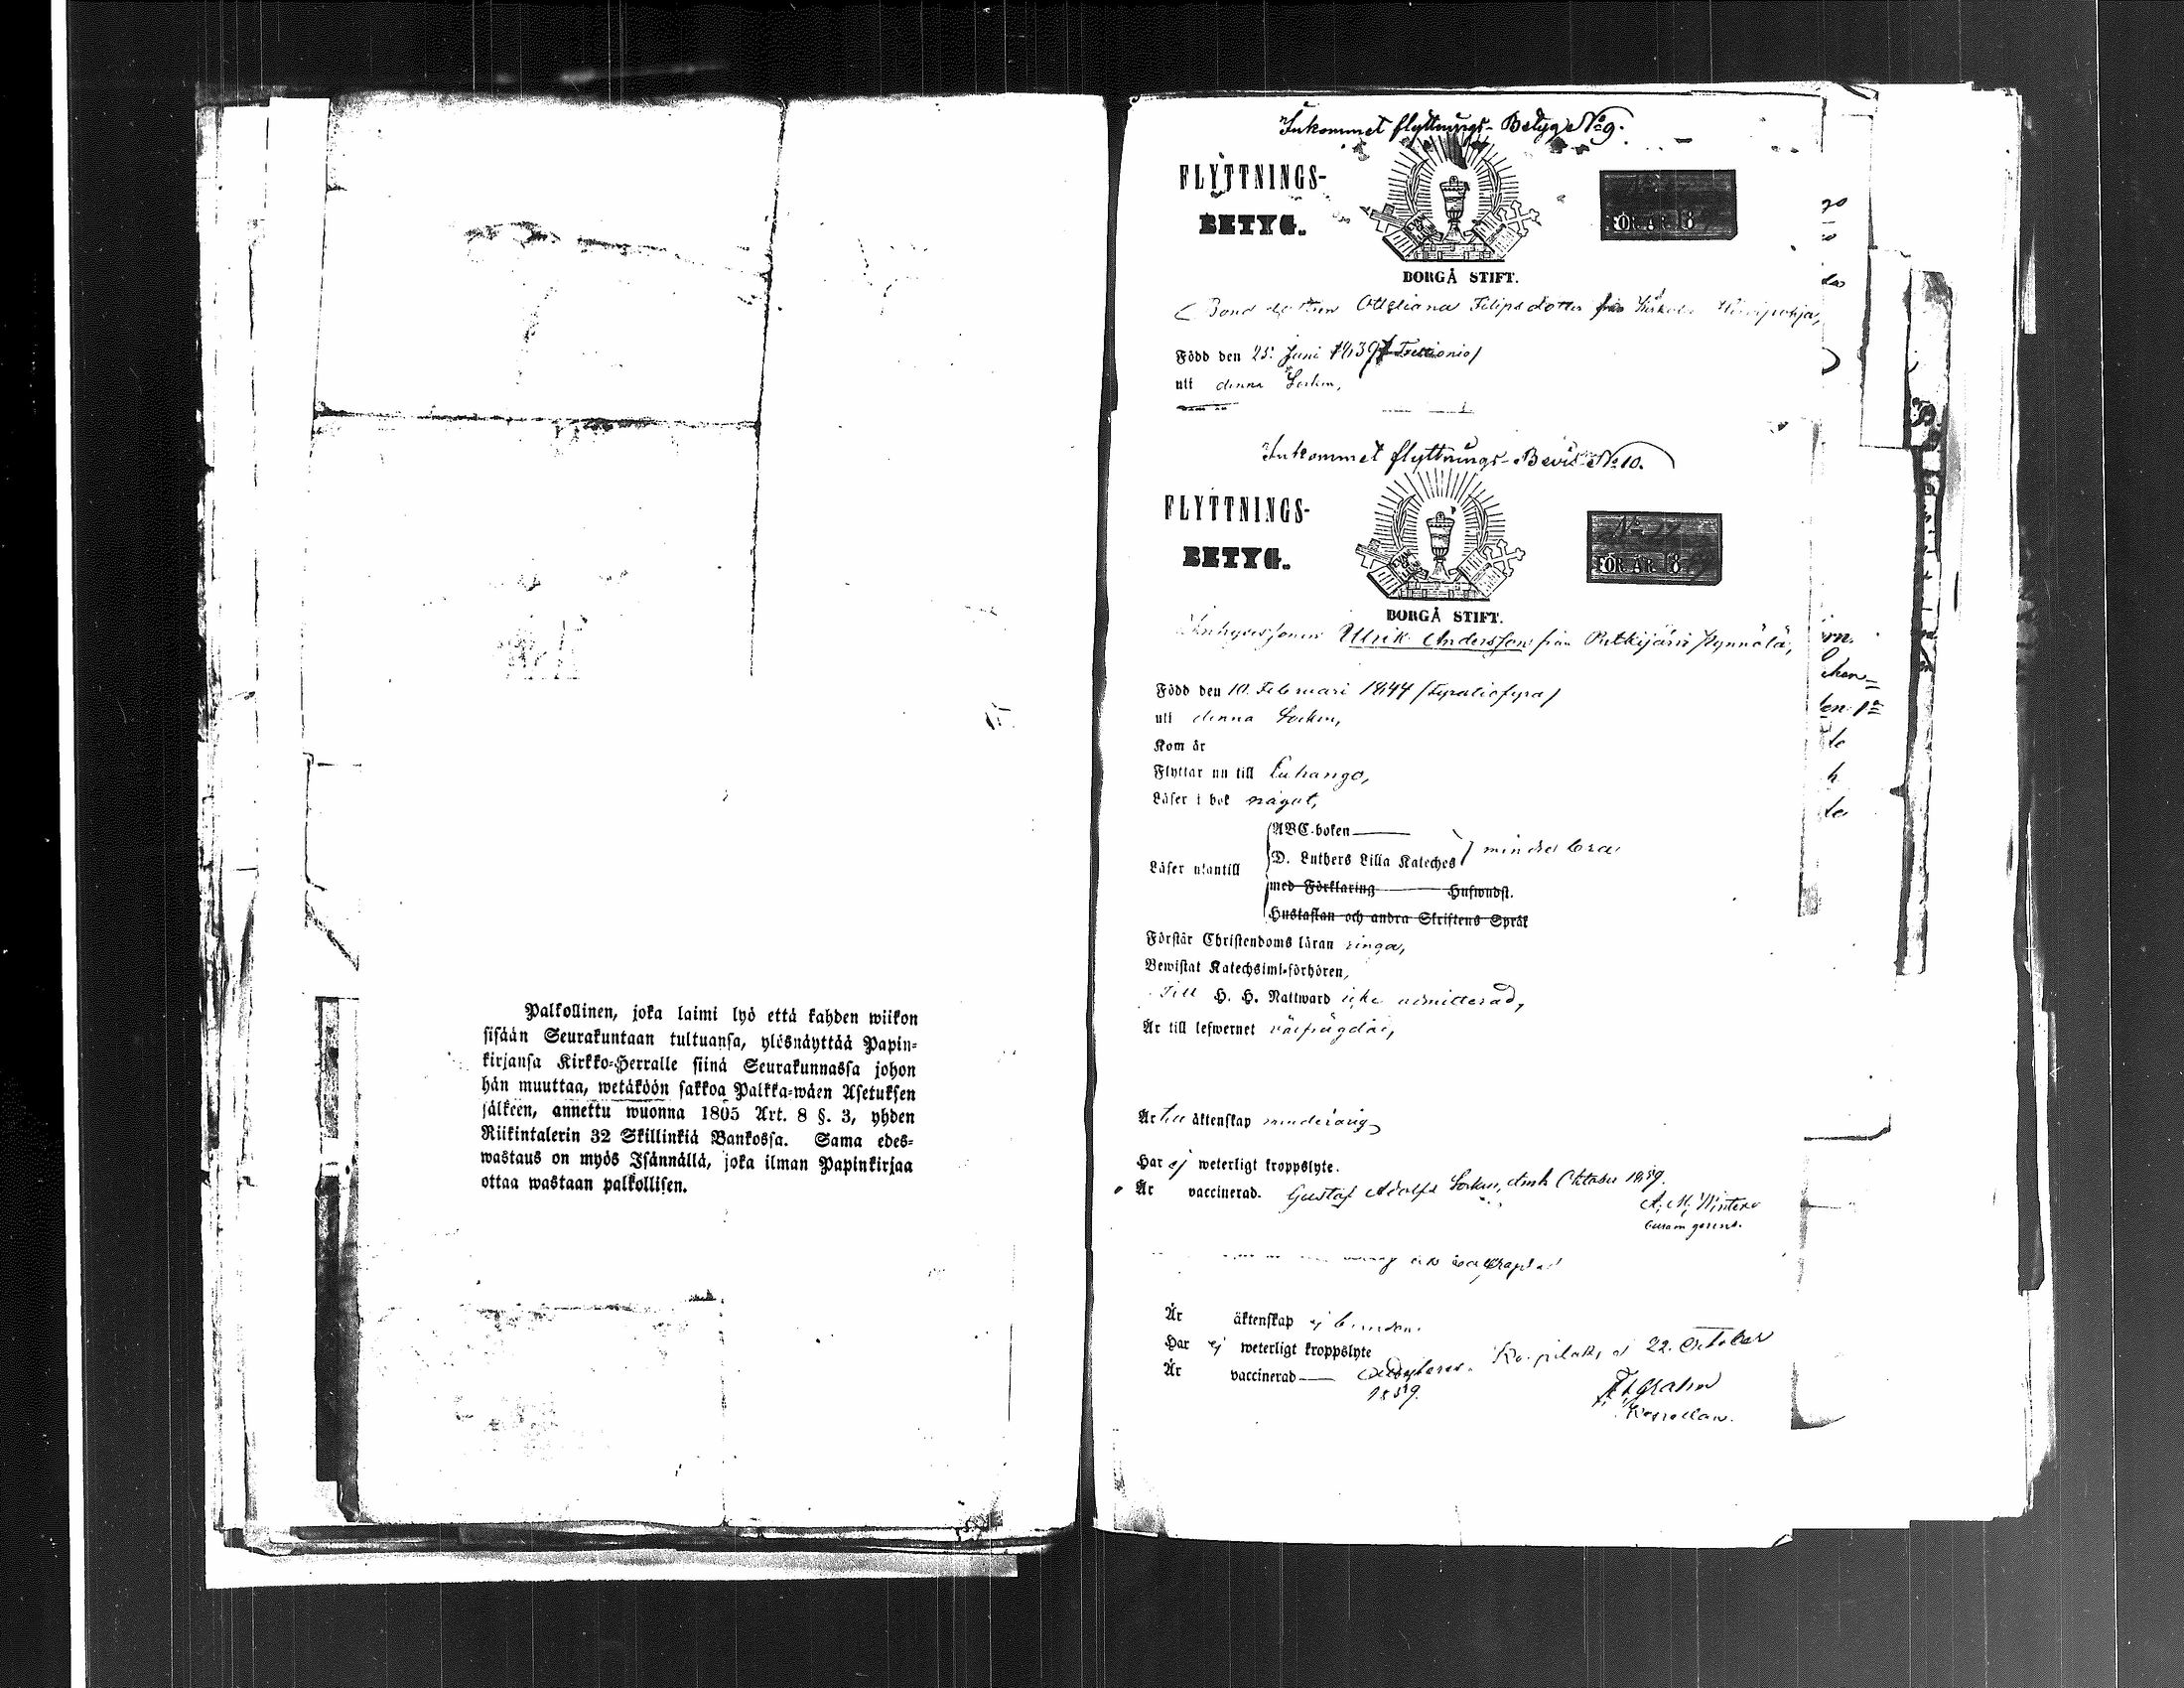 Palkollinen, joka laimi lyö että kahden wiikon
sisään Seurakuntaan tultuansa, ylösnäyttää Papin-
kirjansa Kirkko-Herralle siinä Seurakunnassa johon
hän muuttaa, wetäköön sakkoa Palkka-wäen Asetuksen
jälkeen, annettu wuonna 1805 Art. 8 §. 3, yhden
Riikintalerin 32 Skillinkiä Bankossa. Sama edes-
wastaus on myös Isännällä, joka ilman Papinkirjaa
ottaa wastaan palkollisen.
Inkommet flyttnings-Betyg No 9.
FLYTTNINGS-
BETYG.
FÖR ÅR 18
BORGÅ STIFT.
Bond dottren Ottiliana Filips dotter från
Född den 25 Juni 1839 /Trettionio/
uti denna Socken,
Inkommet flyttnings-Bevis No 10.
FLYTTNINGS-
BETYG.
No
FÖR ÅR 18
BORGÅ STIFT.
Inhysessonen Ulrik Andersson från Putkijärvi Nynnälä,
Född den 10. Februari 1844 /Fyratiofyra/
uti denna Socken,
Kom år
Flyttar nu till Luhango,
Läser i bok något,
ABC-boken
D. Luthers Lilla Kateches mindre bra
Läser utantill
med Förklaring Hufwudst.
Hustaflan och andra Skriftens Språk
Förstår Christendoms läran ringa,
Bewistat Katechsimi-förhören,
Till H. H. Nattward icke admitterad,
Är till lefwernet
Är till äktenskap minderårig
Har ej weterligt kroppslyte.
Är vaccinerad. Gustaf Adolfs Socken, den Oktober 1859.
A. M. Winter
curam gerens.
Är äktenskap ej bunden.
Har ej weterligt kroppslyte
Är vaccinerad 22 October
1859.